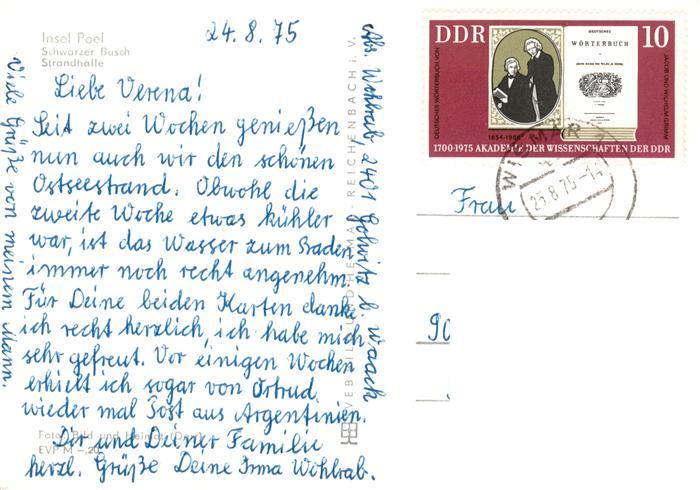 Insel Poel
Schwarzer Busch
Strandhalle
24.8.75
Liebe Verena!
Seit zwei Wochen genießen
nun auch wir den schönen
Ostseestrand. Obwohl die
zweite Woche etwas kühler
war, ist das Wasser zum Baden
immer noch recht angenehm.
Für Deine beiden Karten danke
ich recht herzlich, ich habe mich
sehr gefreut. Vor einigen Wochen
erhielt ich sogar von Ortrud
wieder mal Post aus Argentinien.
Dir und Deiner Familie
herzl. Grüße Deine Irma Wohlrab.
Viele Grüße von meinem Mann.
Abs. Wohlrab, 2401 Gollwitz b. Waack
Foto: Bild und Heimat
EVP M –,20
REICHENBACH i. V.
DDR
10
DEUTSCHES
WÖRTERBUCH
DEUTSCHES WÖRTERBUCH VON
JACOB UND WILHELM GRIMM
1700-1975 AKADEMIE DER WISSENSCHAFTEN DER DDR
WISMAR
25.8.75
Frau
90